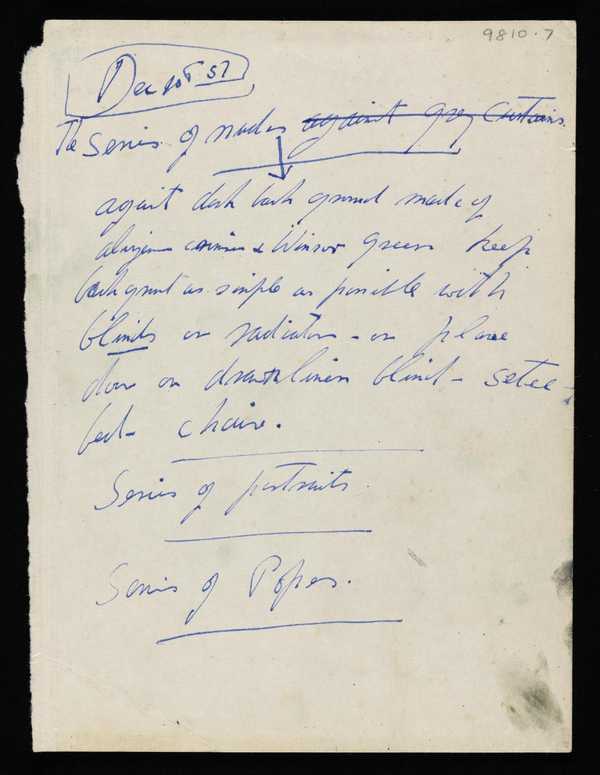 9810.7
Dec 10th 57
The Series of nudes against grey curtains.
against dark back ground made of
alizarin crimson & Winsor green keep
background as simple as possible with
blinds or radiator - or plane
door or drawn linen blind - setee -
bed - chair.
Series of portraits.
Series of Popes.